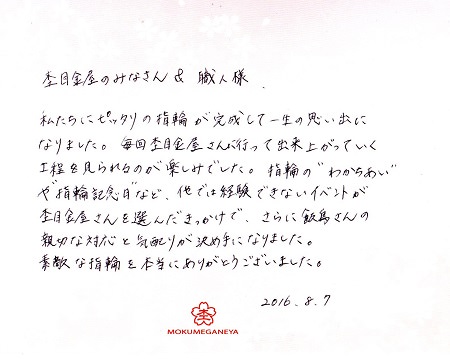 杢目金屋のみなさん & 職人様
私たちにピッタリの指輪が完成して一生の思い出に
なりました。毎回杢目金屋さんに行って出来上がっていく
工程を見られるのが楽しみでした。指輪の“わかちあい”
や“指輪記念日”など、他では経験できないイベントが
杢目金屋さんを選んだきっかけで、さらに飯島さんの
親切な対応と気配りが決め手になりました。
素敵な指輪を本当にありがとうございました。
2016.8.7
MOKUMEGANEYA